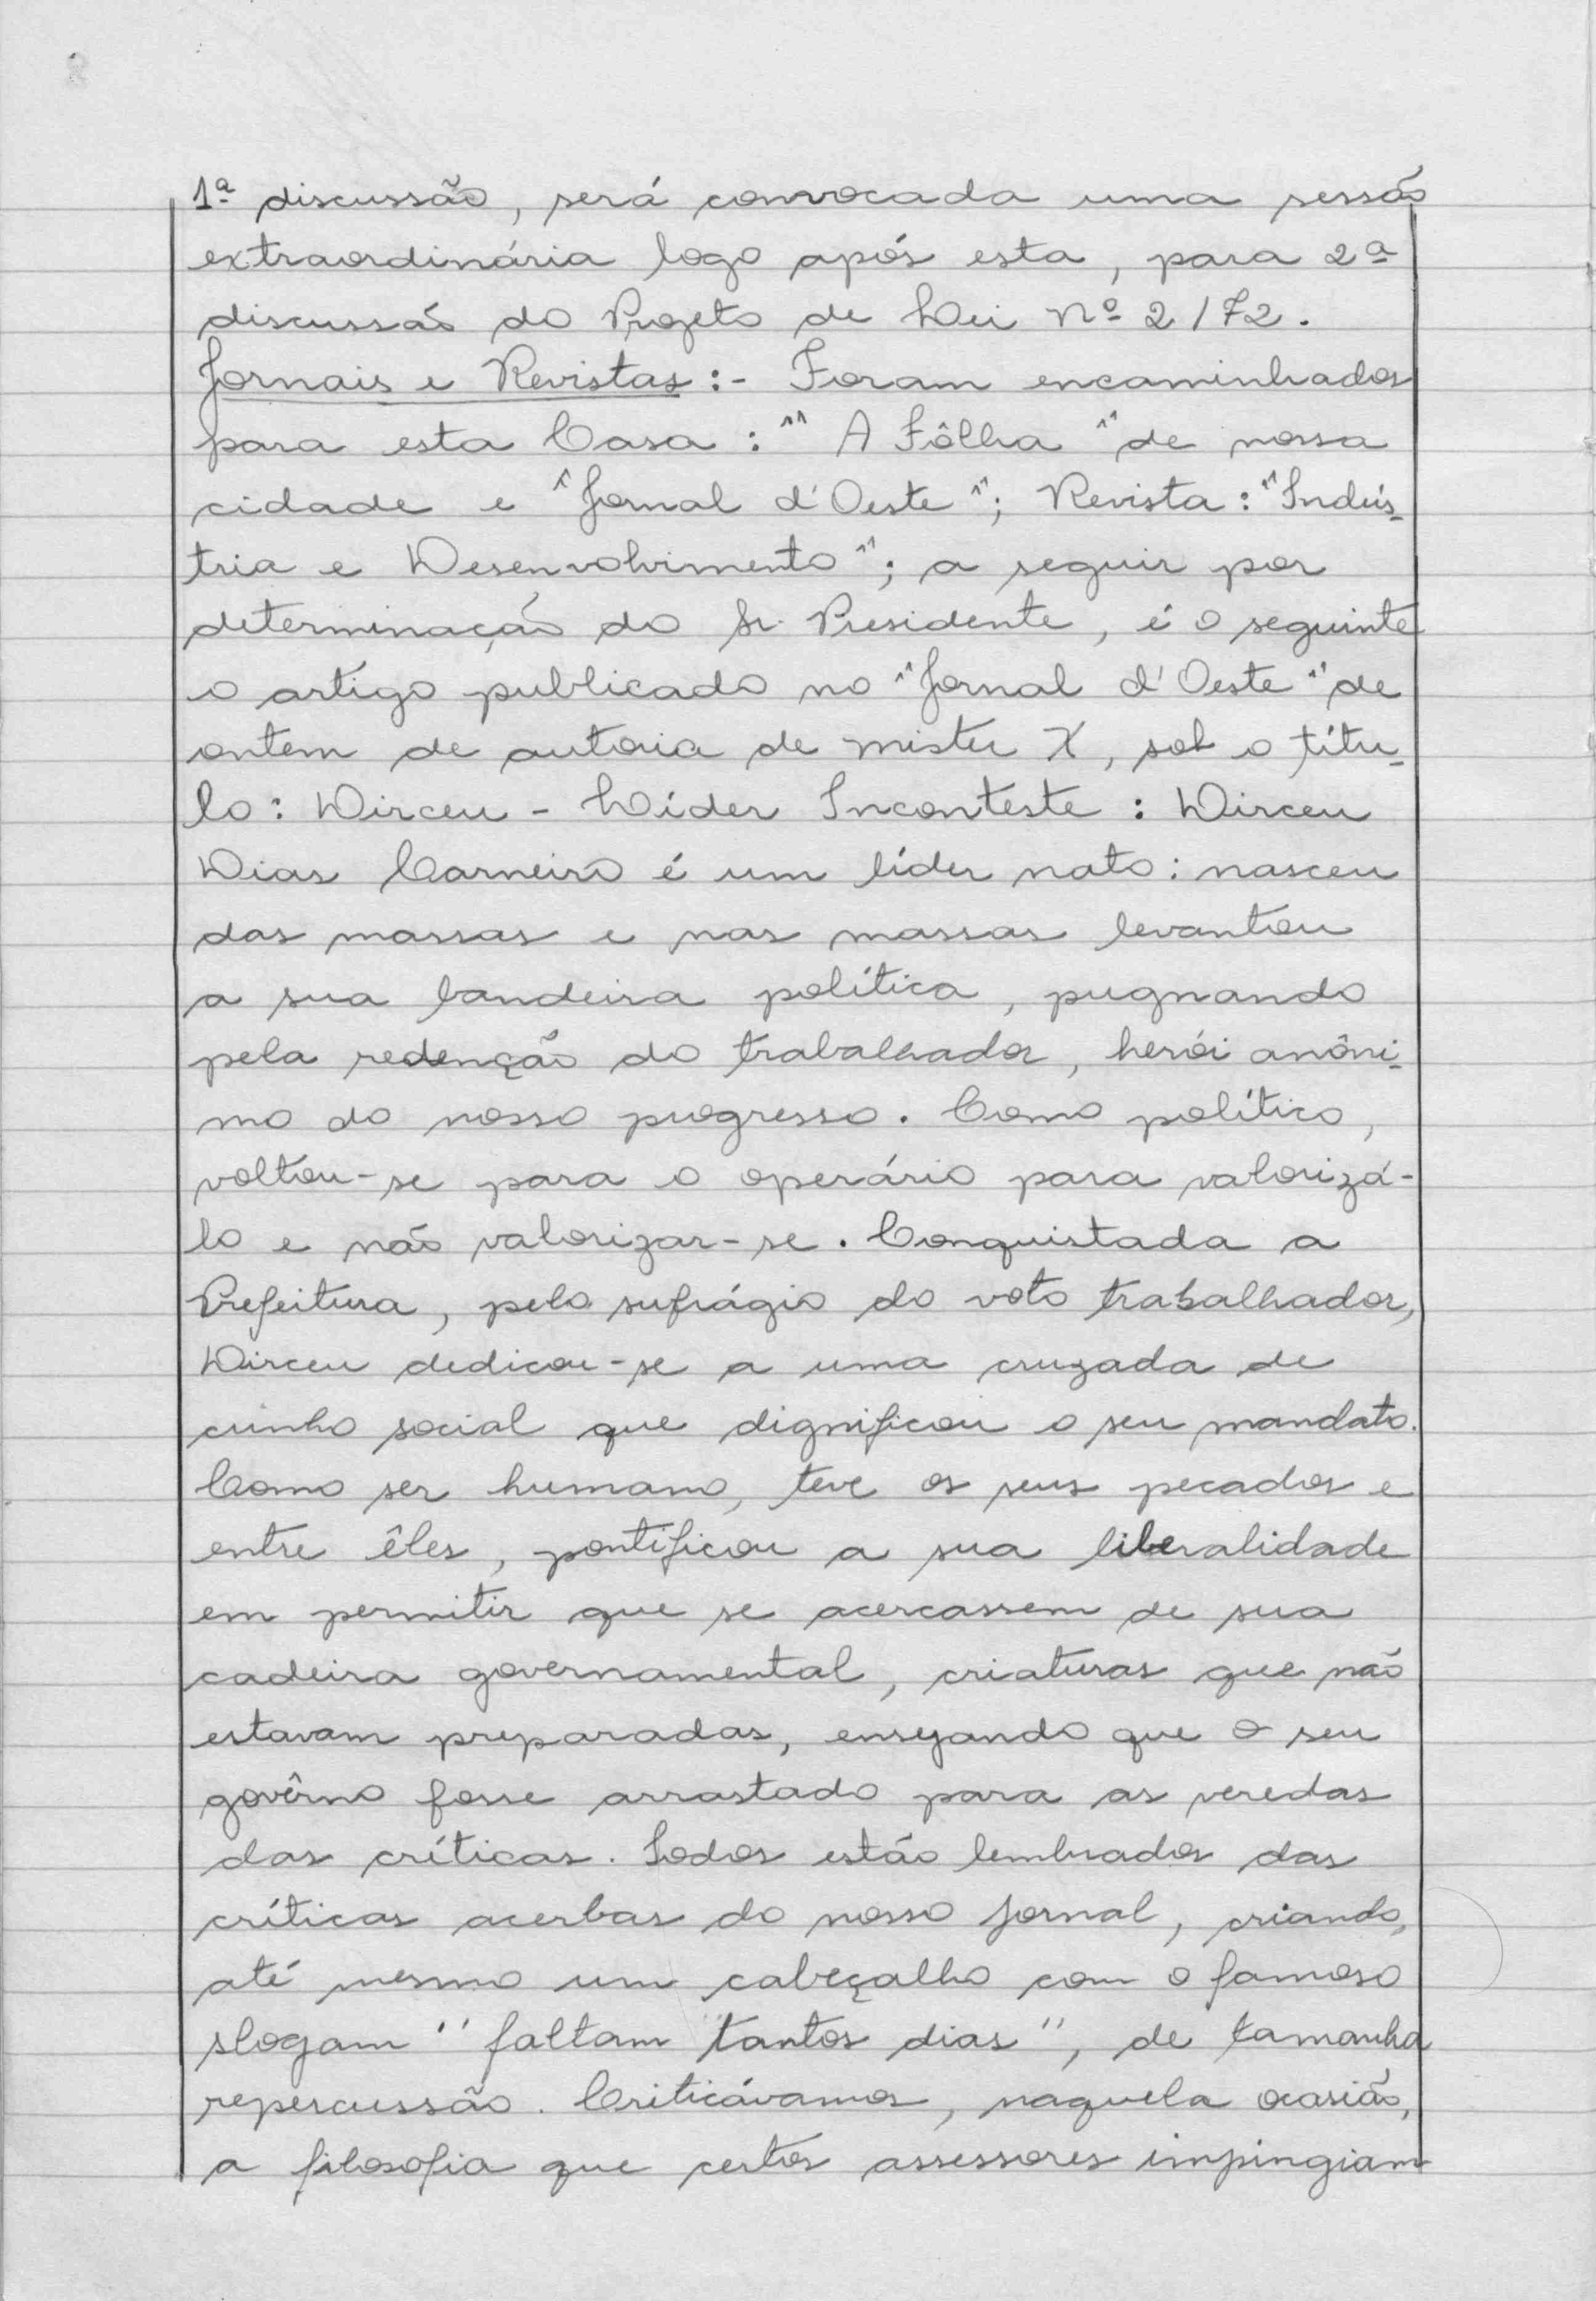 1ª discussão, será convocada uma sessão
extraordinária logo após esta, para 2ª
discussão do Projeto de Lei Nº 2/72.
Jornais e Revistas:- Foram encaminhados
para esta Casa: "A Fôlha" de nossa
cidade e "Jornal d'Oeste"; Revista: "Indús-
tria e Desenvolvimento"; a seguir por
determinação do Sr. Presidente, é o seguinte
o artigo publicado no "Jornal d'Oeste" de
ontem de autoria de mister X, sob o títu-
lo: Dirceu - Líder Inconteste: Dirceu
Dias Carneiro é um líder nato: nasceu
das massas e nas massas levantou
a sua bandeira política, pugnando
pela redenção do trabalhador, herói anôni-
mo do nosso progresso. Como político,
voltou-se para o operário para valorizá-
lo e não valorizar-se. Conquistada a
Prefeitura, pelo sufrágio do voto trabalhador,
Dirceu dedicou-se a uma cruzada de
cunho social que dignificou o seu mandato.
Como ser humano, teve os seus pecados e
entre êles, pontificou a sua liberalidade
em permitir que se acercassem de sua
cadeira governamental, criaturas que não
estavam preparadas, ensejando que o seu
govêrno fosse arrastado para as veredas
das críticas. Todos estão lembrados das
críticas acerbas do nosso jornal, criando,
até mesmo um cabeçalho com o famoso
slogam "faltam tantos dias", de tamanha
repercussão. Criticávamos, naquela ocasião,
a filosofia que certos assessores impingiam